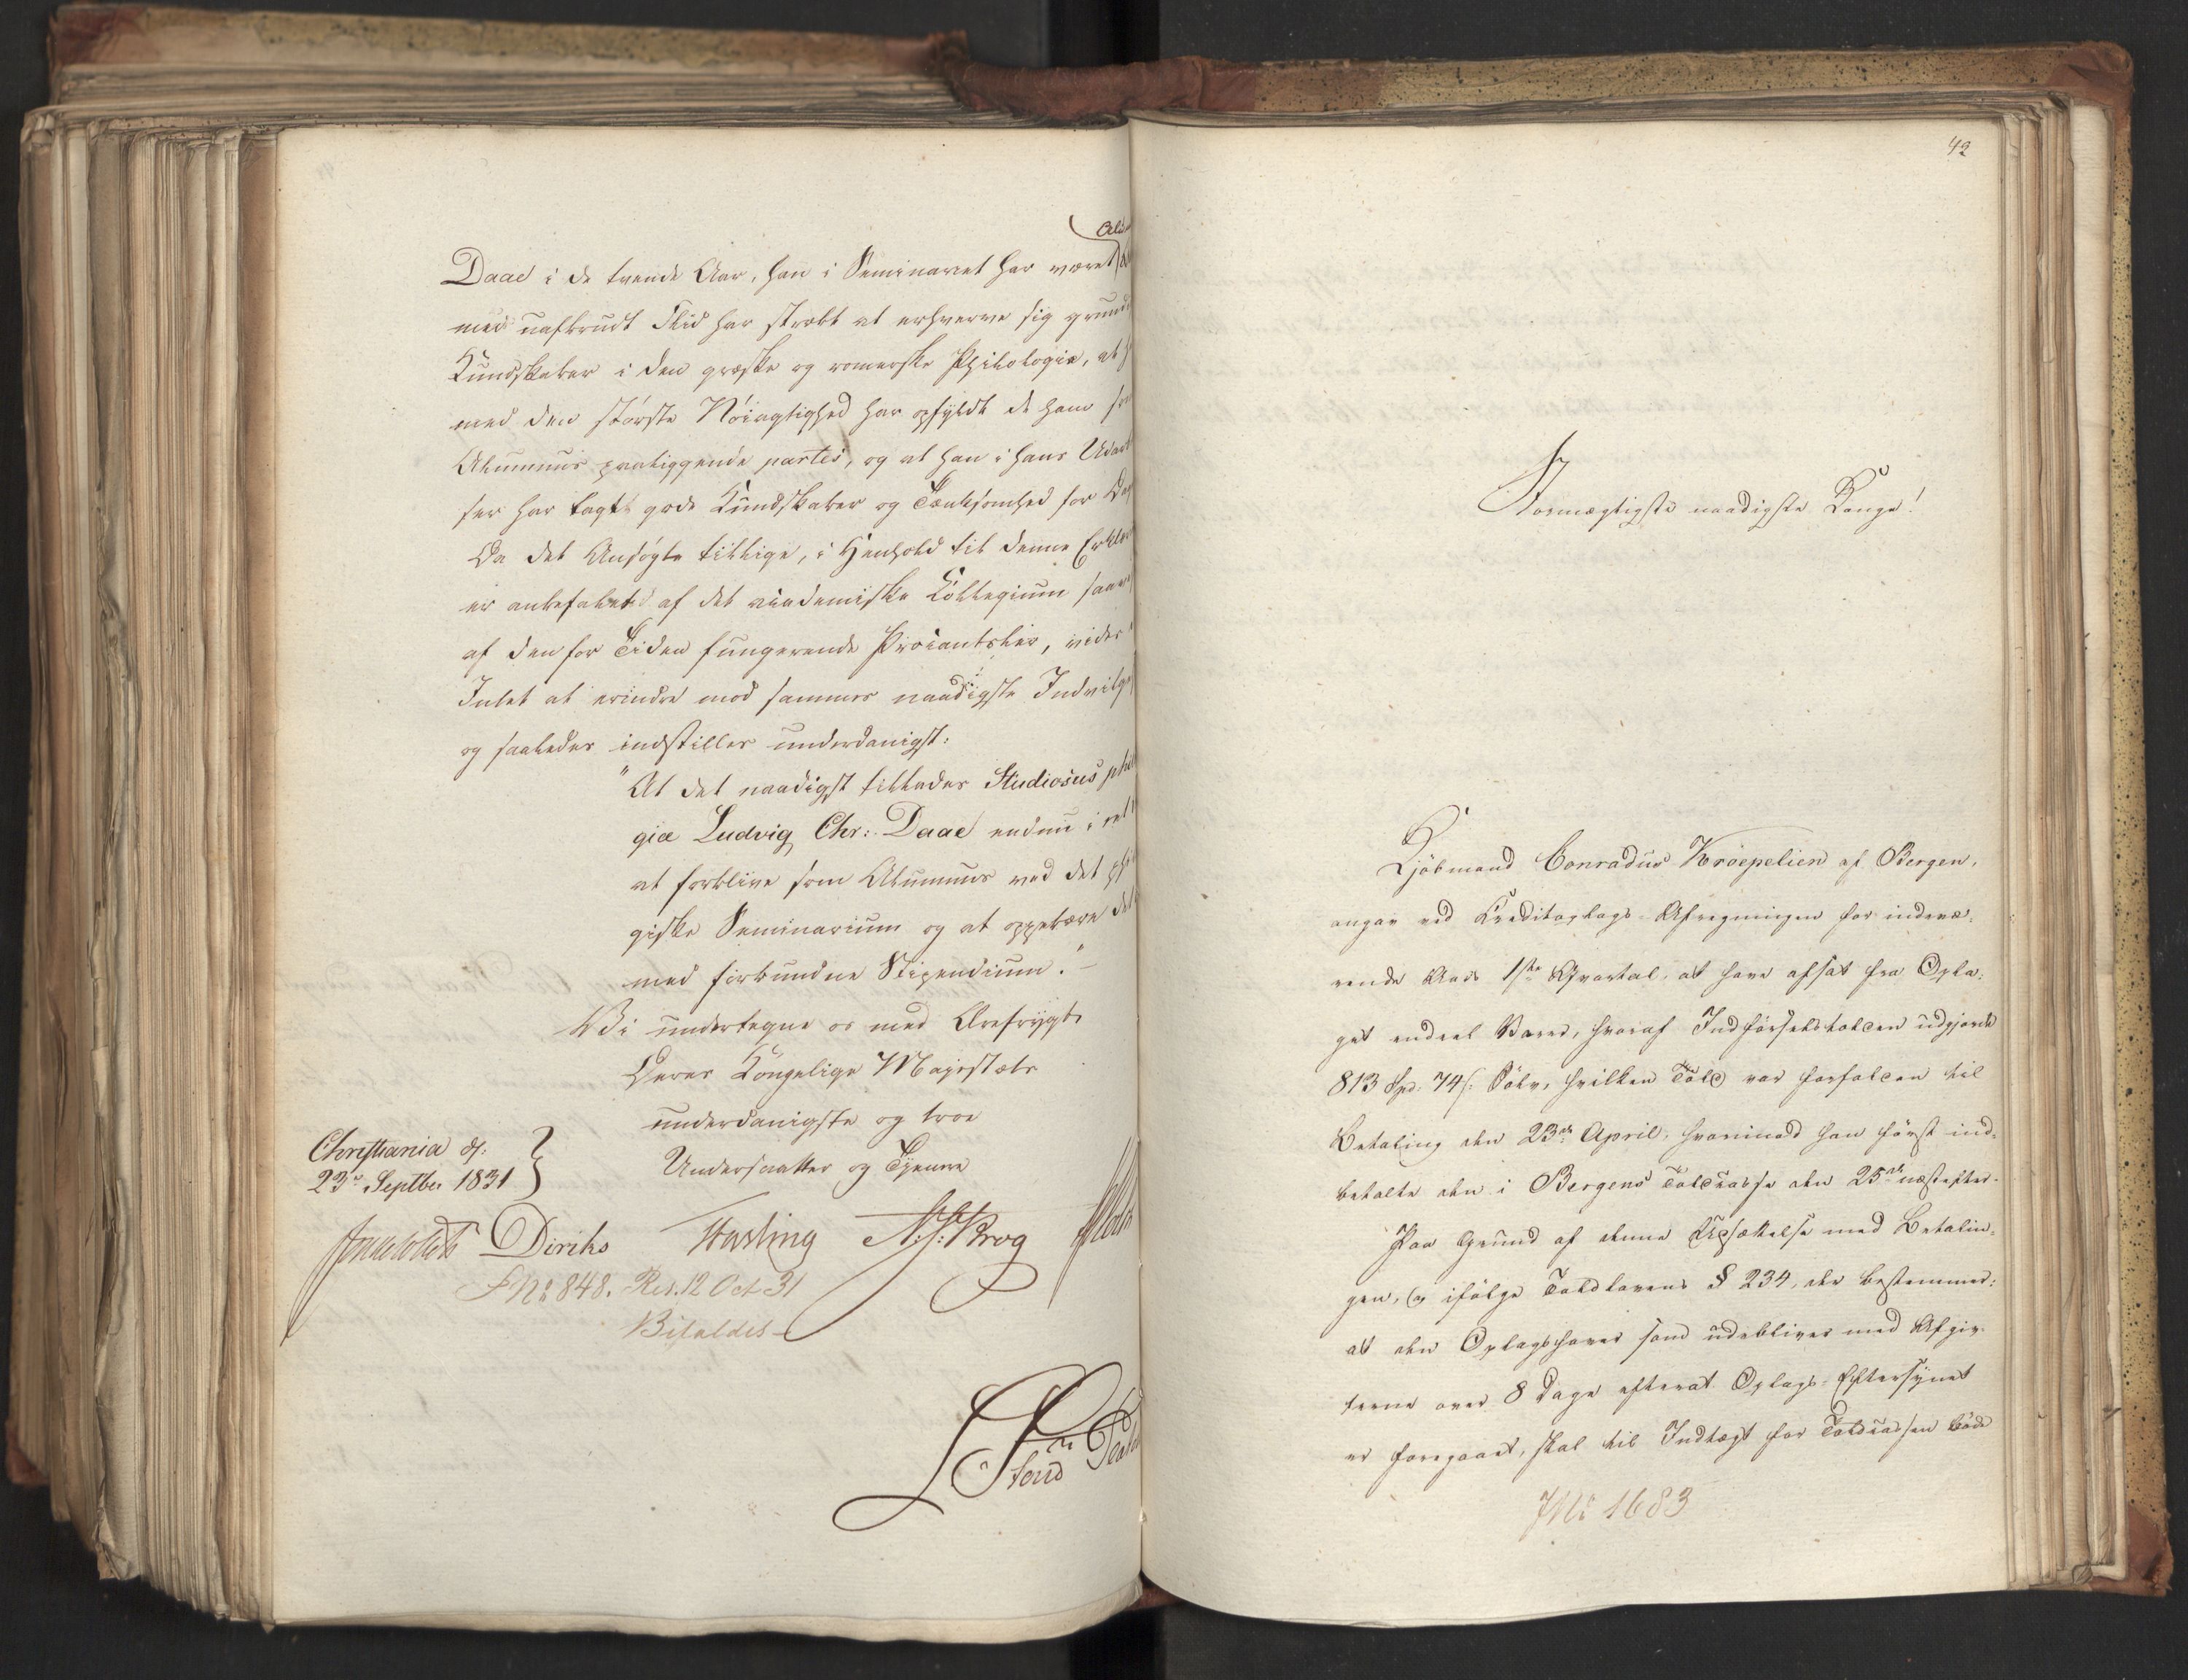 Daae i de tvende Aar, han i Seminariet har været
med uafbrudt Flid har stræbt at erhverve sig
Kundskaber i den græske og romerske Philologie, at
med den største Nöiagtighed har opfyldt de ham
Alumnus paaliggende partes, og at han i hans
ser har lagt gode Kundskaber og Tænksomhed for
Da det Ansøgte tillige, i Henhold til denne
er anbefalet af det academiske Collegium
af den for Tiden fungerende Procantsler, vides
Intet at erindre mod sammes naadigste
og saaledes indstilles underdanigst:
"At det naadigst tillades Studiosus
giæ Ludvig Chr: Daae endnu i
at forblive som Alumnus ved det
giske Seminarium og at oppebære
med forbundne Stipendium."
Vi undertegne os med Ærefrygt
Deres Kongelige Majestæts
underdanigste og troe
Undersaatter og Tjenere
Christiania d:
23de Septbr 1831
Diriks Hasling Krog
No 848. Res. 12 Oct 31
Bifaldes
42
Stormægtigste naadigste Konge!
Kjöbmand Conradus Kröepelien af Bergen,
angav ved Creditoplags-Afregningen for indevæ-
rende Aars 1ste Qvartal, at have afsat fra Opla-
get endeel Varer, hvoraf Indförselstolden udgjorde
813 Spd. 74 s. Sölv, hvilken Told var forfalden til
Betaling den 23de April, hvorimod han först ind-
betalte den i Bergens Toldcasse den 25de næstefter.
Paa Grund af denne Udsættelse med Betalin-
gen, og ifölge Toldlovens § 234, der bestemmer:
at den Oplagshaver som udebliver med Afgiv-
terne over 8 Dage efterat Oplags-Eftersynet
er foregaaet, skal til Indtægt for Toldcassen böde
JNo 1683